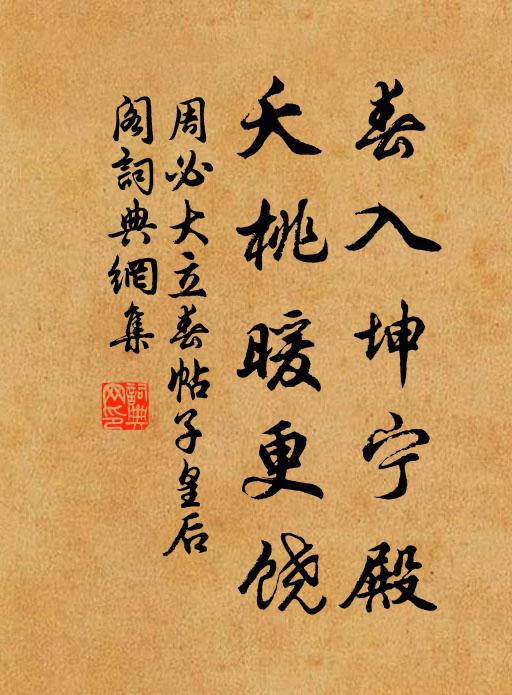 春入坤宁殿
夭桃暖更饶
周必大立春帖子皇后
阁詞典網集
詞典
网印